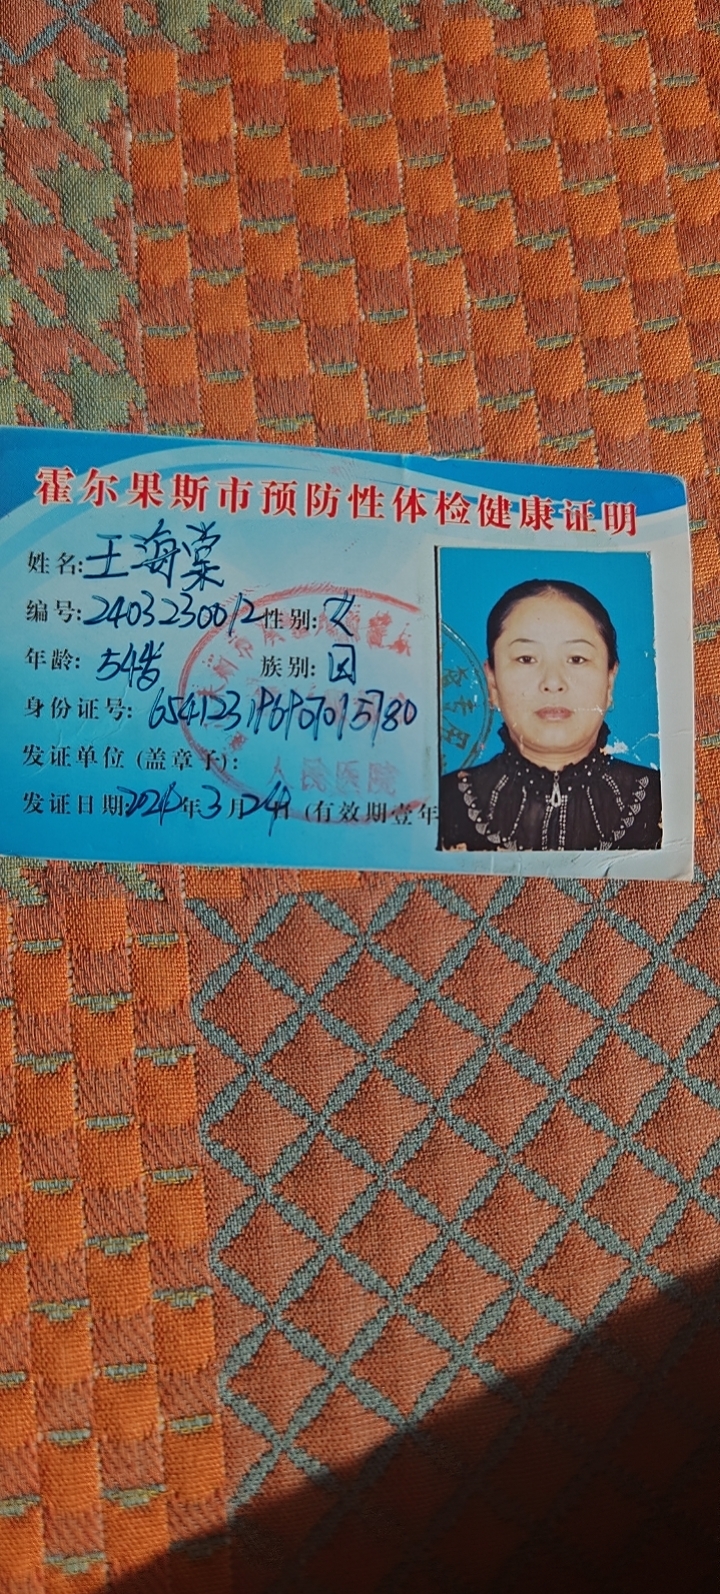 霍尔果斯市预防性体检健康证明
姓名:王海棠
编号:2403230012 性别:女
年龄:54岁 族别:回
身份证号:
发证单位(盖章子):
发证日期 年3月24日(有效期壹年
人民医院